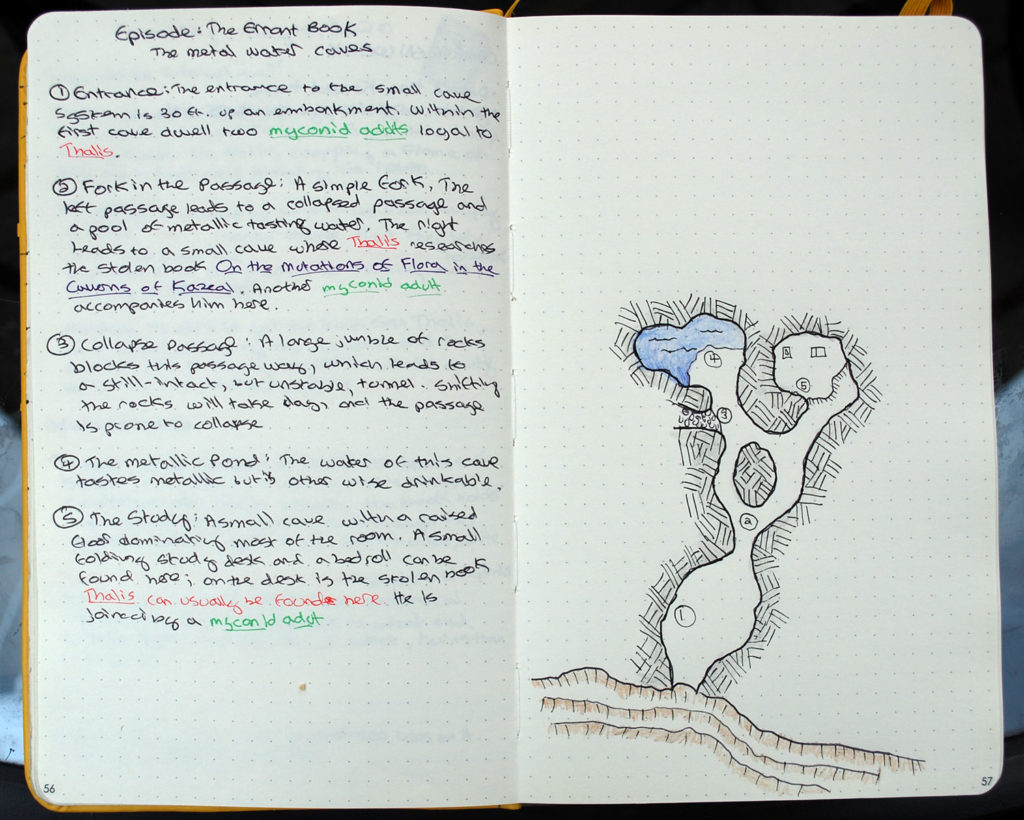 Episode: The Errant Book
The metal water caves
① Entrance: The entrance to the small cave
system is 30 ft. up an embankment. Within the
first cave dwell two myconid adults loyal to
Thalis.
② Fork in the Passage: A simple fork, The
left passage leads to a collapsed passage and
a pool of metallic tasting water. The right
leads to a small cave where Thalis researches
the stolen book On the Mutations of Flora in the
Caverns of Kazeal. Another myconid adult
accompanies him here.
③ Collapse Passage: A large jumble of rocks
blocks this passage way, which leads to
a still-intact, but unstable, tunnel. Shifting
the rocks will take days, and the passage
is prone to collapse
④ The metallic Pond: The water of this cave
tastes metallic but is other wise drinkable.
⑤ The Study: A small cave with a raised
floor dominating most of the room. A small
folding study desk and a bedroll can be
found here; on the desk is the stolen book
Thalis can usually be found here. He is
joined by a myconid adult
56
4
5
3
2
1
57